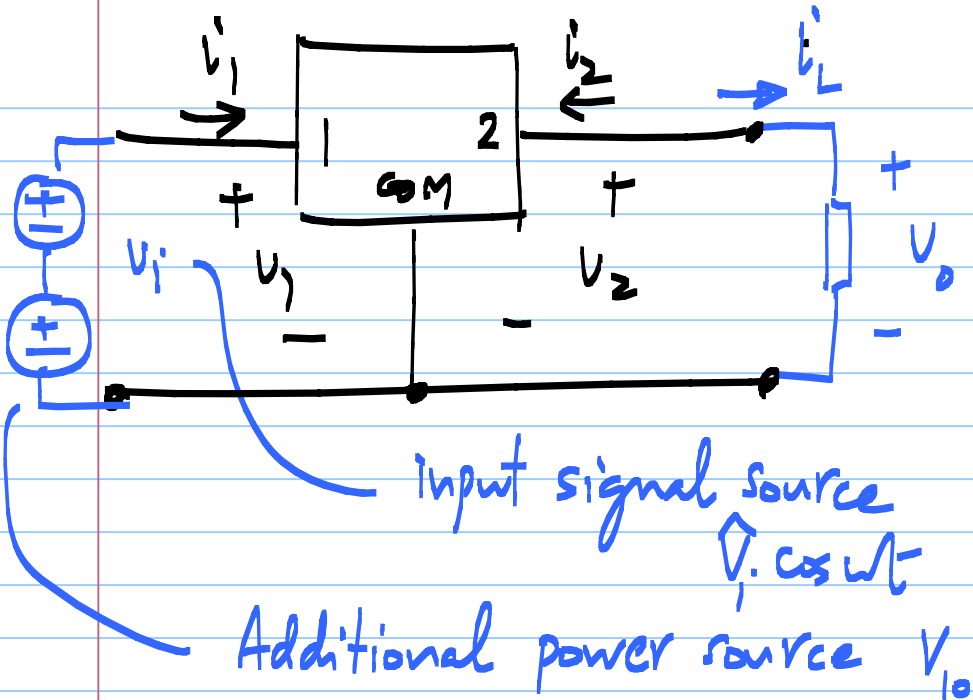 i₁ i₂ i_L
1 2
COM
+ + +
v_i v₁ v₂ v_o
− − −
input signal source
V̂ᵢ cos ωt
Additional power source V₁₀